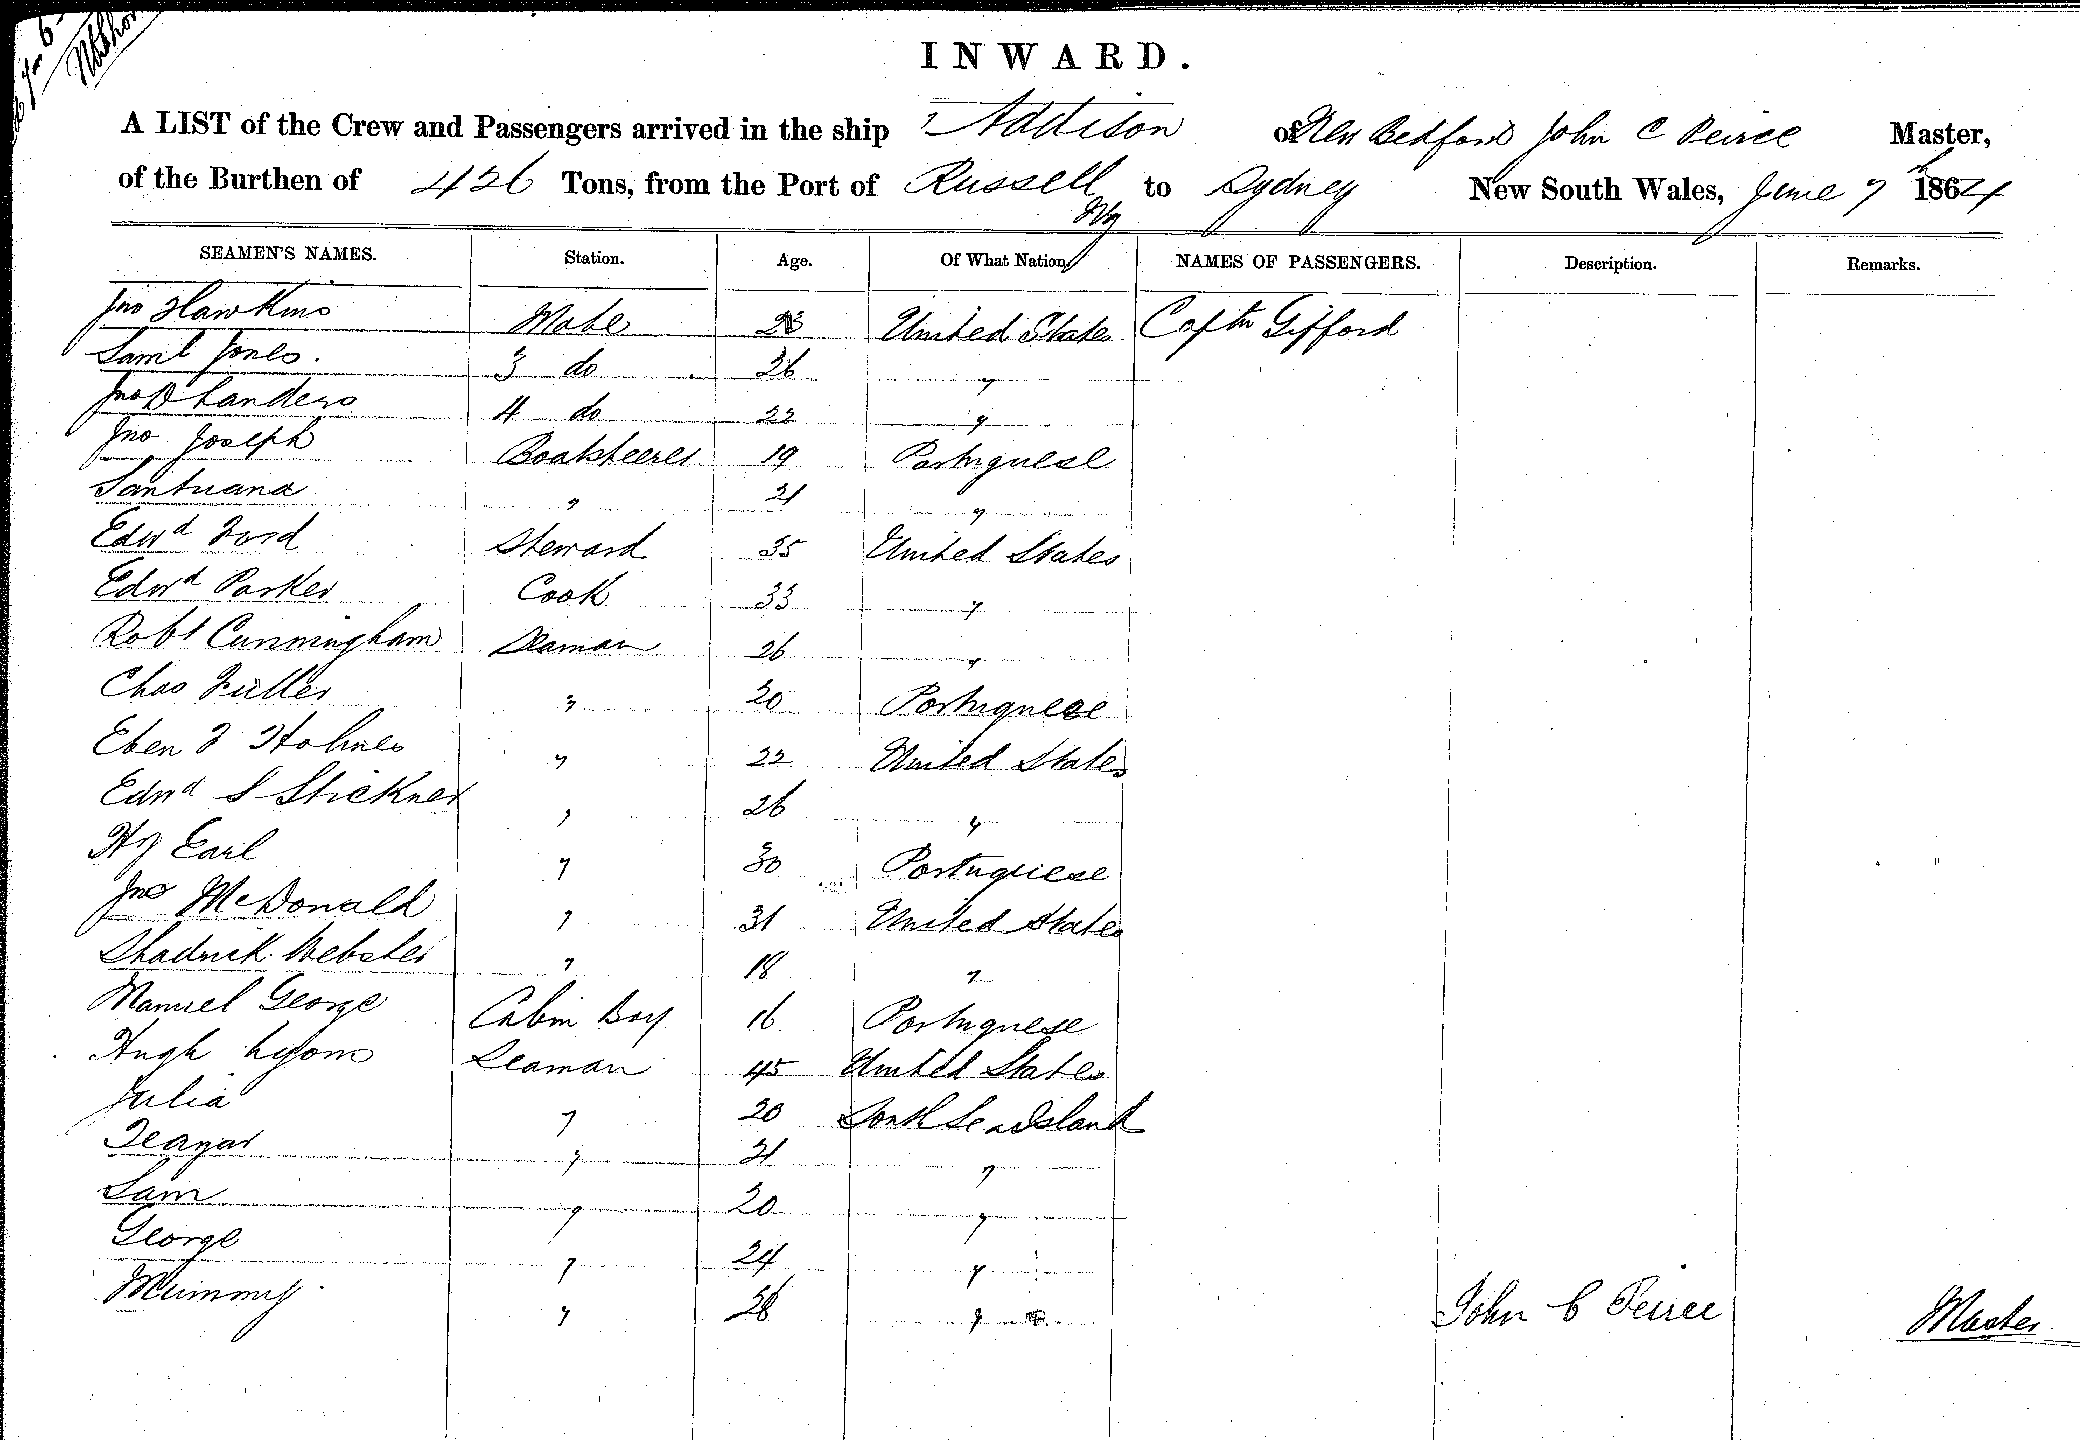 INWARD.
A LIST of the Crew and Passengers arrived in the ship Addison of New Bedford John C Peirce Master,
of the Burthen of 426 Tons, from the Port of Russell to Sydney New South Wales, June 7th 1864
SEAMEN'S NAMES. Station. Age. Of What Nation. NAMES OF PASSENGERS. Description. Remarks.
Jno Hawkins Mate 28 United States Captn Gifford
Saml Jones. 3 do 26 "
Jno D Landers 4 do 22 "
Jno Joseph Boatsteerer 19 Portuguese
Santuana " 21 "
Edwd Ford Steward 35 United States
Edwd Parker Cook 33 "
Robt Cunningham Seaman 26 "
Chas Fuller " 20 Portuguese
Eben F Holmes " 22 United States
Edwd S Stickney " 26 "
Hy Earl " 30 Portuguese
Jno McDonald " 31 United States
Shadrick Webster " 18 "
Manuel George Cabin Boy 16 Portuguese
Hugh Lyons Seaman 45 United States
Julia " 20 South Sea Island
" 21 "
Sam " 20 "
George " 24 "
Mummy " 28 "
John C Peirce Master